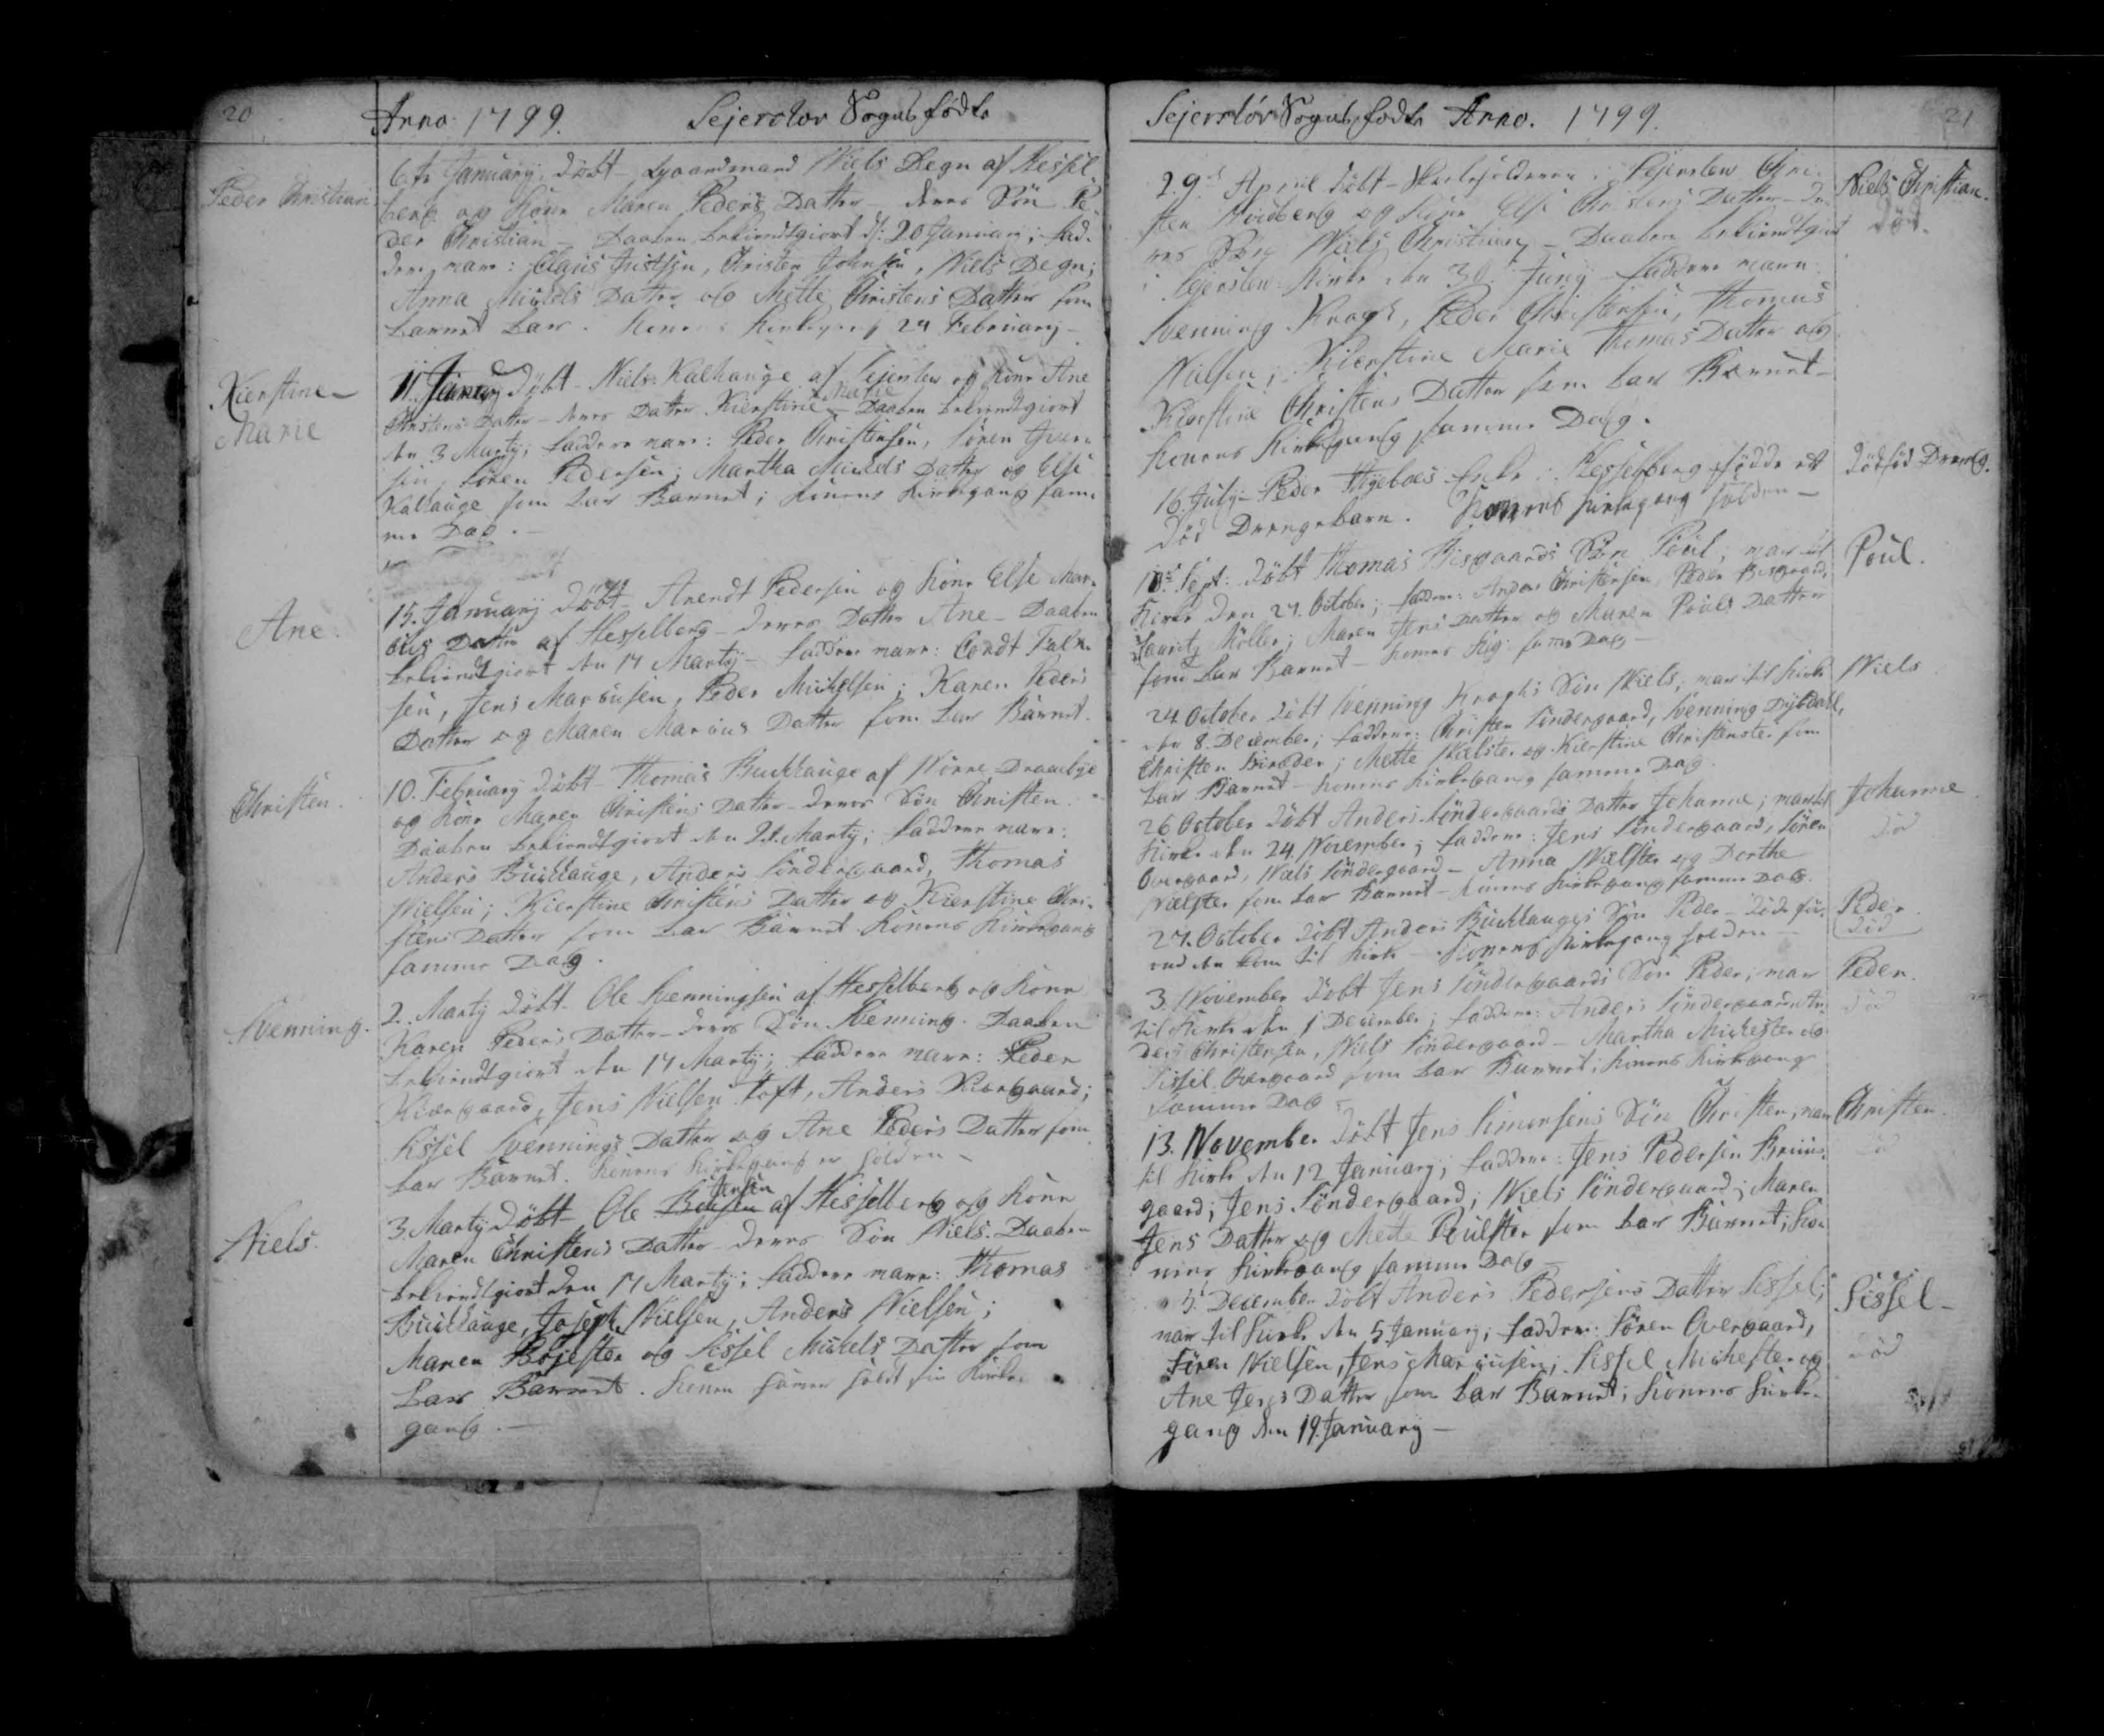 20
Anno 1799. Sejerslov Sogns fødte
Peder Christian
6te January, døbt - Gaardmand Niels Degn af Hessel-
berg og Kone Maren Peders Datter - deres Søn Pe-
der Christian - Daaben bekiendtgiort d: 20 January; Fad-
dere vare: Claus Justsen, Christen Johnsen, Niels Degn;
Anna Mickels Datter og Mette Christens Datter som
Barnet bar. Konens Kirkegang 24 February -
Kierstine -
Marie
11. January døbt - Niels Kalhauge af Sejerslev og Kone Ane
Christens Datter - deres Datter Kierstine Marie - Daaben bekiendtgiort
den 3 Martij; Faddere vare: Peder Christensen, Søren Iver-
sen, Søren Pedersen; Martha Mickels Datter og Else
Kalhauge som bar Barnet; Konens Kirkegang sam-
me Dag. -
Ane.
15. January døbt - Arendt Pedersen og Kone Else Mar-
cus Datter af Hesselberg - deres Datter Ane - Daaben
bekiendtgiort den 17 Martij - Faddere vare: Cordt
sen, Jens Marcusen, Peder Mickelsen; Karen Peders
Datter og Maren Marcus Datter som bar Barnet.
Christen.
10. February døbt - Thomas Buchhauge af Nørre Draabye
og Kone Maren Christens Datter - deres Søn Christen.
Daaben bekiendtgiort den 21. Martij; Faddere vare:
Anders Buchhauge, Anders Søndergaard, Thomas
Nielsen; Kierstine Christens Datter og Kierstine Chri-
stens Datter som bar Barnet Konens Kirkegang
samme Dag.
Svenning.
2. Martij døbt - Ole Svenningsen af Hesselberg og Kone
Karen Peders Datter - deres Søn Svenning. Daaben
bekiendtgiort den 17 Martij; Faddere vare: Peder
Kiærgaard, Jens Nielsen Toft, Anders Kiærgaard;
Sissel Svennings Datter og Ane Peders Datter som
bar Barnet. Konens Kirkegang er holden -
Niels.
3 Martij døbt - Ole Jensen af Hesselberg og Kone
Maren Christens Datter - deres Søn Niels. Daaben
bekiendtgiort den 17 Martij; Faddere vare: Thomas
Buchhauge, Joseph Nielsen, Anders Nielsen;
Maren Bojester og Sissel Mickels Datter som
bar Barnet. Konen haver holdt sin Kirke-
gang. -
21
Sejerslov Sogns fødte Anno. 1799.
29de April døbt - Skoleholderen i Sejerslev Chri-
sten Hvidberg og Kone Else Christens Datter - de-
res Søn Niels Christian - Daaben bekiendtgiort
i Sejerslev Kirke den 30 Junij Faddere vare
Svenning Kragh, Peder Christensen, Thomas
Nielsen; Kierstine Marie Thomas Datter og
Kierstine Christens Datter som bar Barnet -
Konens Kirkegang samme Dag.
Niels Christian.
død.
16. July - Peder Enke i Hesselberg fødde et
død Drengebarn. Konens Kirkegang holden -
dødfød Dreng.
Sept: døbt Thomas Bisgaards Søn Poul, var til
Kirke den 27. October; Faddere: Anders Christensen, Peder Bisgaard,
Lauritz Møller; Maren Jens Datter og Maren Pouls Datter
som bar Barnet - Konens Kkg: samme Dag -
Poul.
24 October døbt Svenning Kraghs Søn Niels; var til Kirke
den 8. December; Faddere: Christen Søndergaard, Svenning Dybdahl,
Christen; Mette Nielster og Kierstine Christenster som
bar Barnet - Konens Kirkegang samme Dag.
Niels
26 October døbt Anders Søndergaards Datter Johanne; var til
Kirke den 24 November; Faddere: Jens Søndergaard, Søren
Overgaard, Niels Søndergaard - Anna Nielster og Dorthe
Nielster som bar Barnet - Konens Kirkegang samme Dag.
Johanne
død
27. October døbt Anders Buchhauges Søn Peder - døde før-
end den kom til Kirke - Konens Kirkegang holden -
Peder
død
3 November døbt Jens Søndergaards Søn Peder; var
til Kirke den 1 December; Faddere: Anders Søndergaard, An-
ders Christensen, Niels Søndergaard - Martha Mickelster og
Sissel Overgaard som bar Barnet; Konens Kirkegang
samme Dag -
Peder.
død
13. November døbt Jens Simonsens Søn Christen; var
til Kirke den 12 January; Faddere: Jens Pedersen Bruuns-
gaard; Jens Søndergaard; Niels Søndergaard; Maren
Jens Datter og Mette Poulster som bar Barnet; Ko-
nens Kirkegang samme Dag -
Christen.
død
5. December døbt Anders Pedersens Datter Sissel;
var til Kirke den 5 January; Faddere: Søren Overgaard,
Søren Nielsen, Jens Marcusen; Sissel Mickelster og
Ane Jens Datter som bar Barnet; Konens Kirke-
gang den 19. January -
Sissel -
død